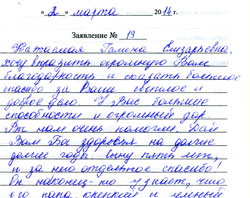 " 2 " марта 2014 г.
Заявление № 19
Уважаемая Галина Елизарьевна,
хочу выразить огромную Вам
благодарность и сказать большое
спасибо за Ваше теплое и
доброе дело. У Вас большие
способности и огромный дар
Вы нам очень помогли. Дай
Вам Бог здоровья на долгие
долгие годы! Сыну пять лет,
и за него отдельное спасибо!
Он наконец-то узнает, что
его папа крепкий и